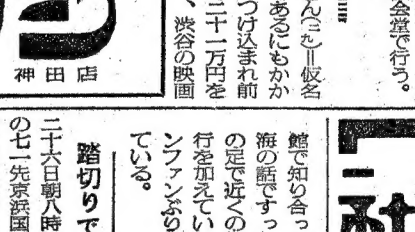 会堂で行う。
ん(二九)＝仮名
あるにもかか
つけ込まれ前
二十一万円を
、渋谷の映画
神田店
館で知り合っ
海の話ですっ
の定で近くの
行を加えてい
ンファンぶり
ている。
踏切りで
二十六日朝八時
の七一先京浜国